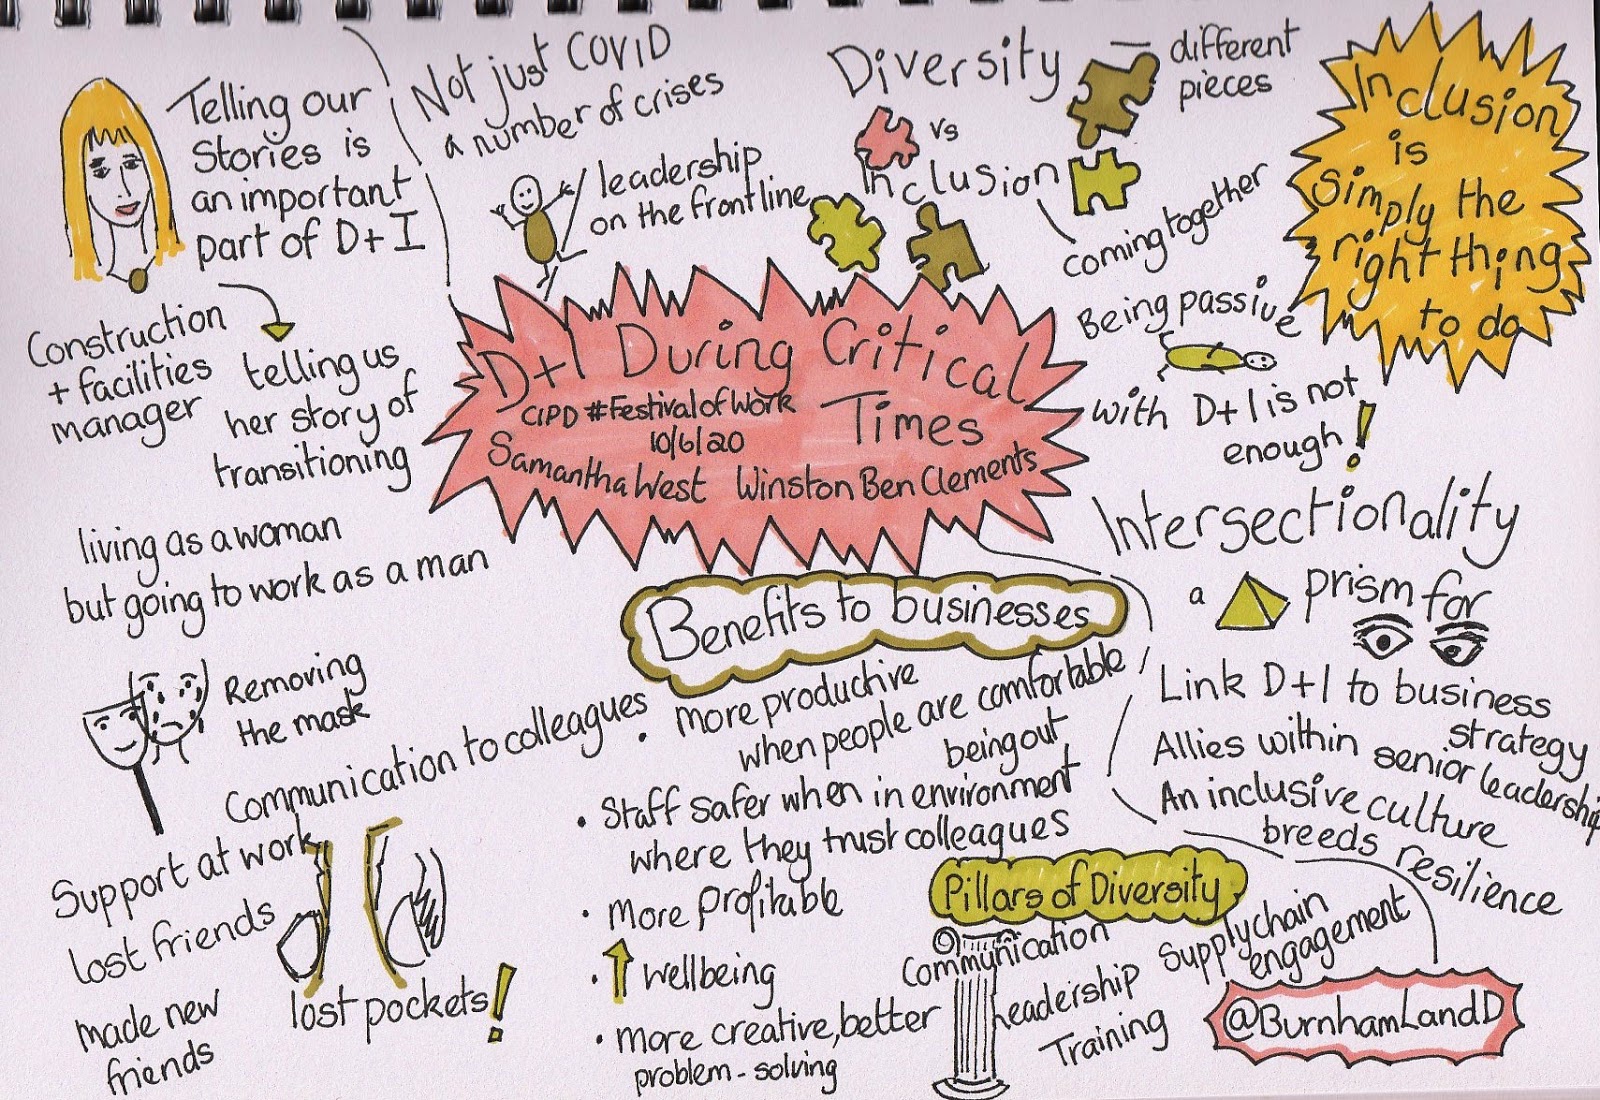 Telling our
Stories is
an important
part of D+I
Construction
+ facilities
manager
telling us
her story of
transitioning
living as a woman
but going to work as a man
Removing
the mask
Communication to colleagues
Support at work
lost friends
made new
friends
lost pockets!
Not just COVID
a number of crises
leadership
on the frontline
Diversity
vs
Inclusion
different
pieces
coming together
Inclusion
is
simply the
right thing
to do
D+I During Critical
Times
CIPD #FestivalofWork
10/6/20
Samantha West Winston Ben Clements
Being passive
with D+I is not
enough!
Intersectionality
a prism for
Link D+I to business
strategy
Allies within senior leadership
An inclusive culture
breeds resilience
Benefits to businesses
• more productive
when people are comfortable
being out
• Staff safer when in environment
where they trust colleagues
• More Profitable
• wellbeing
• more creative, better
problem-solving
Pillars of Diversity
Communication
leadership
Training
Supply chain
engagement
@BurnhamLandD